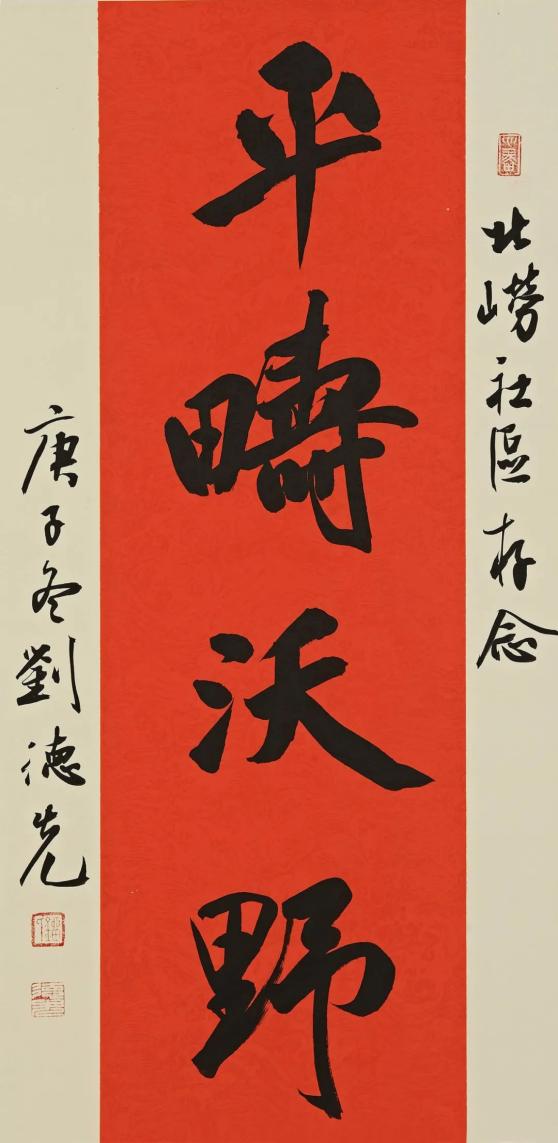 北嶗社區存念
平疇沃野
庚子冬劉德先